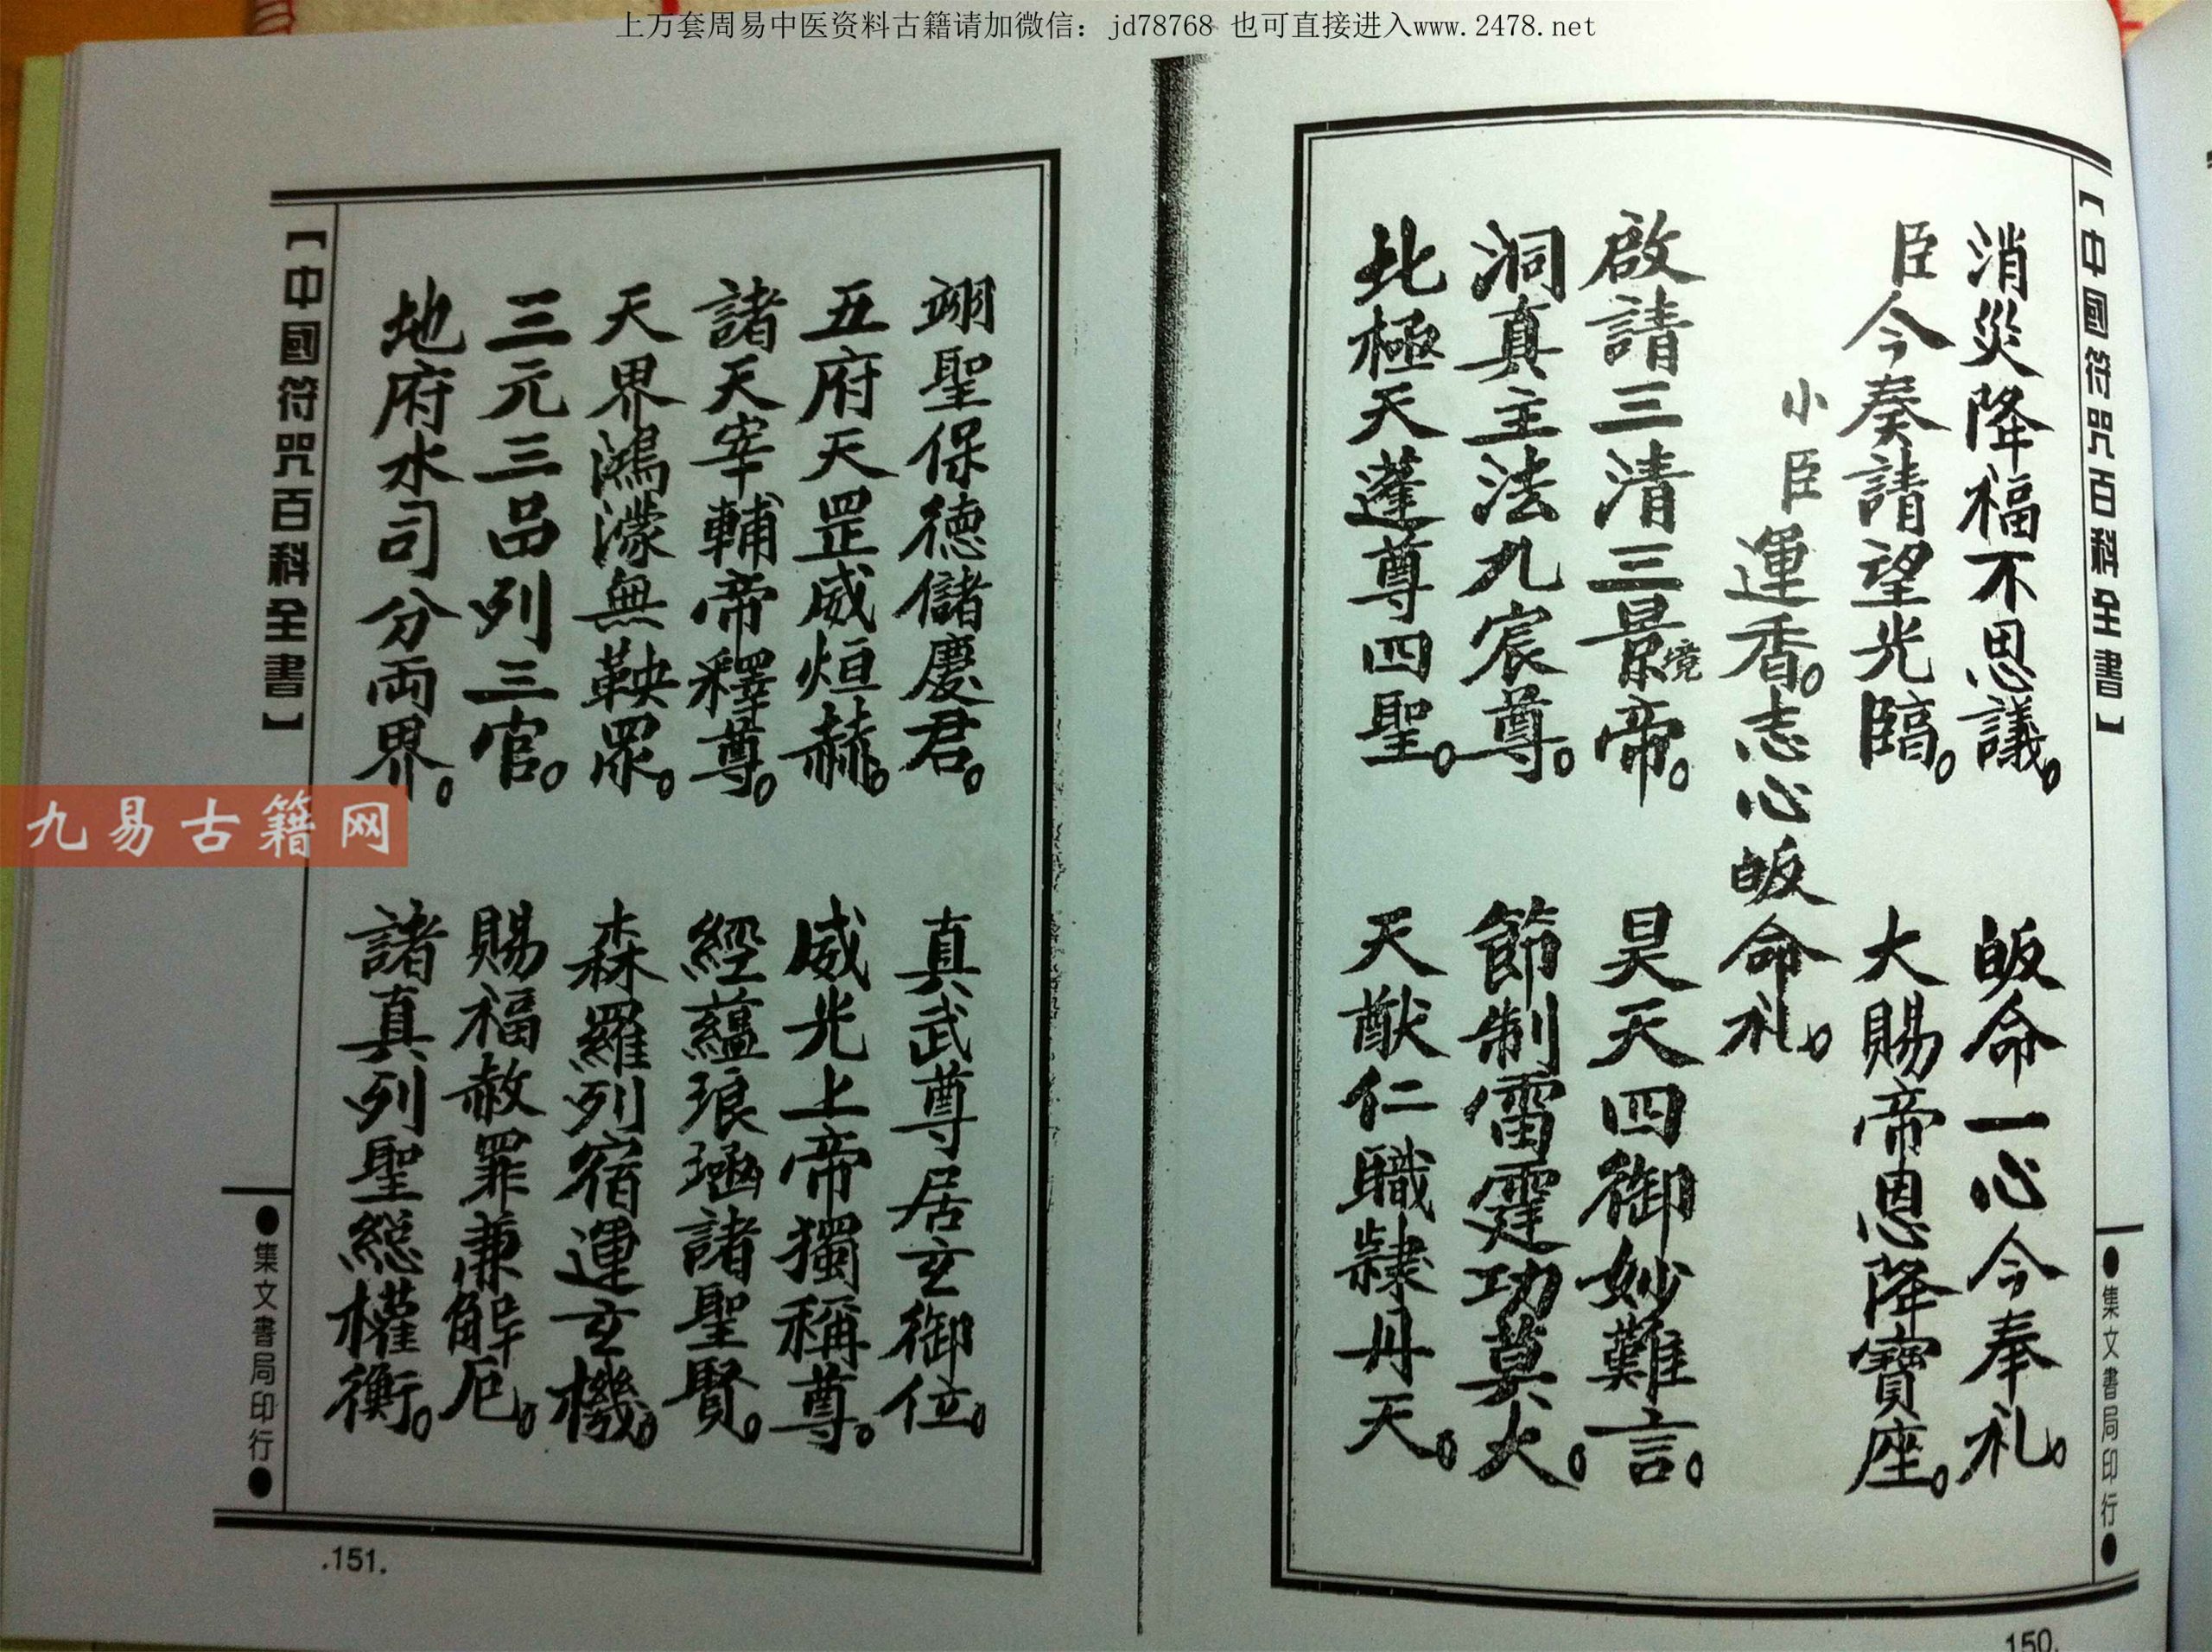 上万套周易中医资料古籍请加微信：jd78768 也可直接进入www.2478.net
【中國符咒百科全書】
●集文書局印行●
消災降福不思議。皈命一心今奉礼。
臣今奏請望光臨。大賜帝恩降寶座。
小臣運香。志心皈命礼。
啟請三清三景境帝。昊天四御妙難言。
洞真主法九宸尊。節制雷霆功莫大。
北極天蓬尊四聖。天猷仁職隸丹天。
150.
翊聖保德儲慶君。真武尊居玄御位。
五府天罡威烜赫。威光上帝獨稱尊。
諸天宰輔帝釋尊。經蘊琅函諸聖賢。
天界鴻濛無鞅眾。森羅列宿運玄機。
三元三品列三官。賜福赦罪兼解厄。
地府水司分両界。諸真列聖總權衡。
【中國符咒百科全書】
●集文書局印行●
.151.
九易古籍网